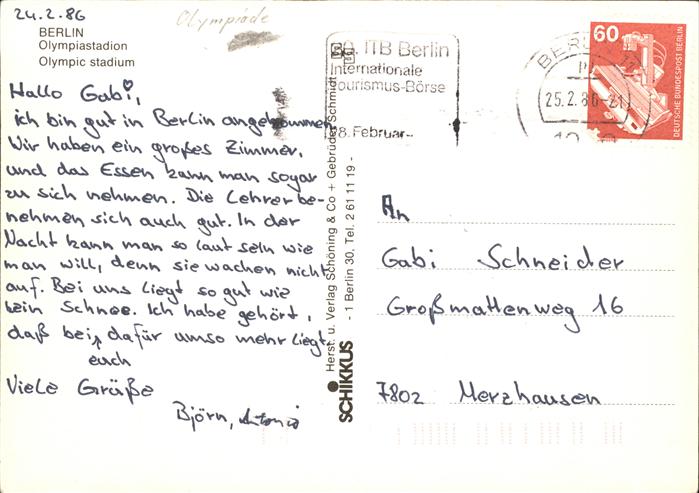 24.2.86
Olympiade
BERLIN
Olympiastadion
Olympic stadium
Hallo Gabi,
ich bin gut in Berlin angekommen.
Wir haben ein großes Zimmer,
und das Essen kann man sogar
zu sich nehmen. Die Lehrer be-
nehmen sich auch gut. In der
Nacht kann man so laut sein wie
man will, denn sie wachen nicht
auf. Bei uns liegt so gut wie
kein Schnee. Ich habe gehört,
daß bei dafür umso mehr liegt.
euch
Viele Grüße
Björn, Antonio
SCHIKKUS
Herst. u. Verlag Schöning & Co + Gebrüder Schmidt
- 1 Berlin 30, Tel. 2 61 11 19 -
ITB Berlin
Internationale
Tourismus-Börse
28. Februar-
BERLIN
25.2.86-21
60
DEUTSCHE BUNDESPOST BERLIN
An
Gabi Schneider
Großmattenweg 16
7802 Merzhausen